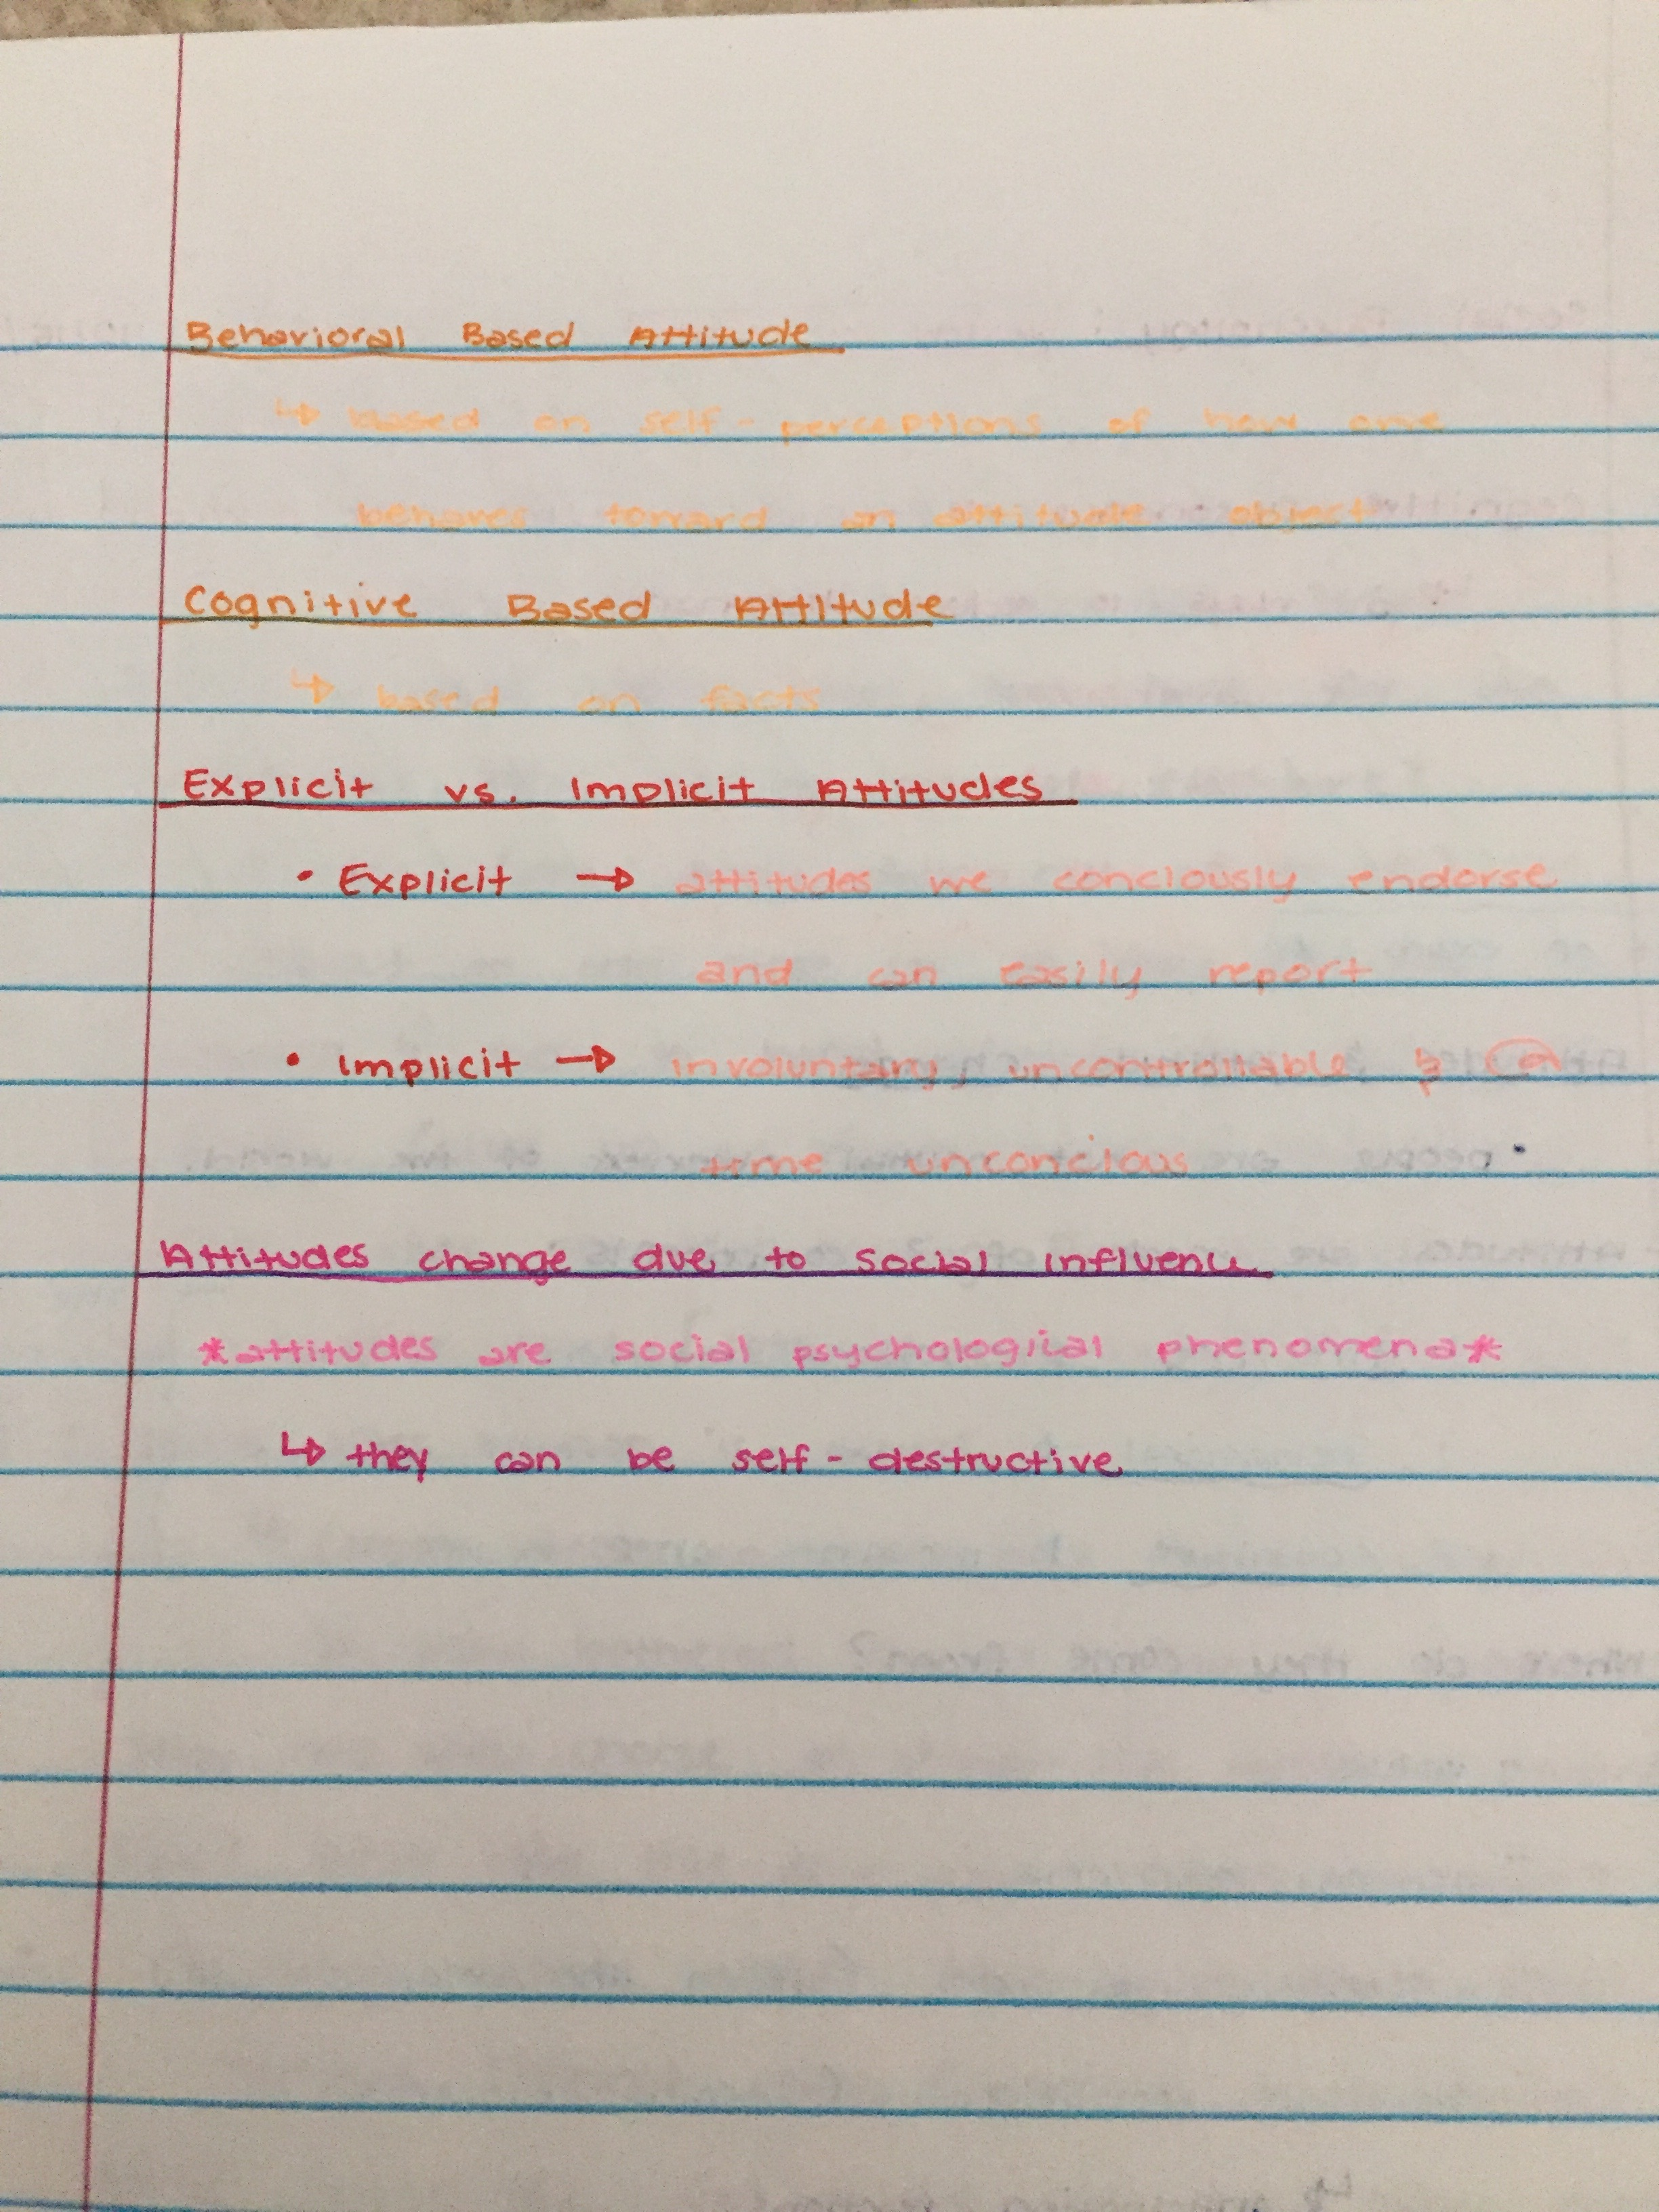 Behavioral Based Attitude
↳ based on self-perceptions of how one
behaves toward an attitude object
Cognitive Based Attitude
↳ based on facts
Explicit vs. Implicit Attitudes
• Explicit → attitudes we conciously endorse
and can easily report
• Implicit → involuntary, uncontrollable & @
time unconcious
Attitudes change due to social influence
*attitudes are social psychological phenomena*
↳ they can be self-destructive